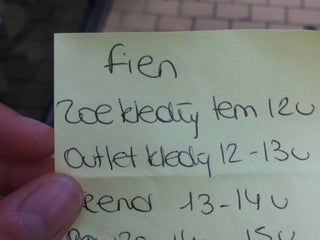 fien
Zoekledij tem 12u
Outlet kledij 12-13u
13-14u
15u